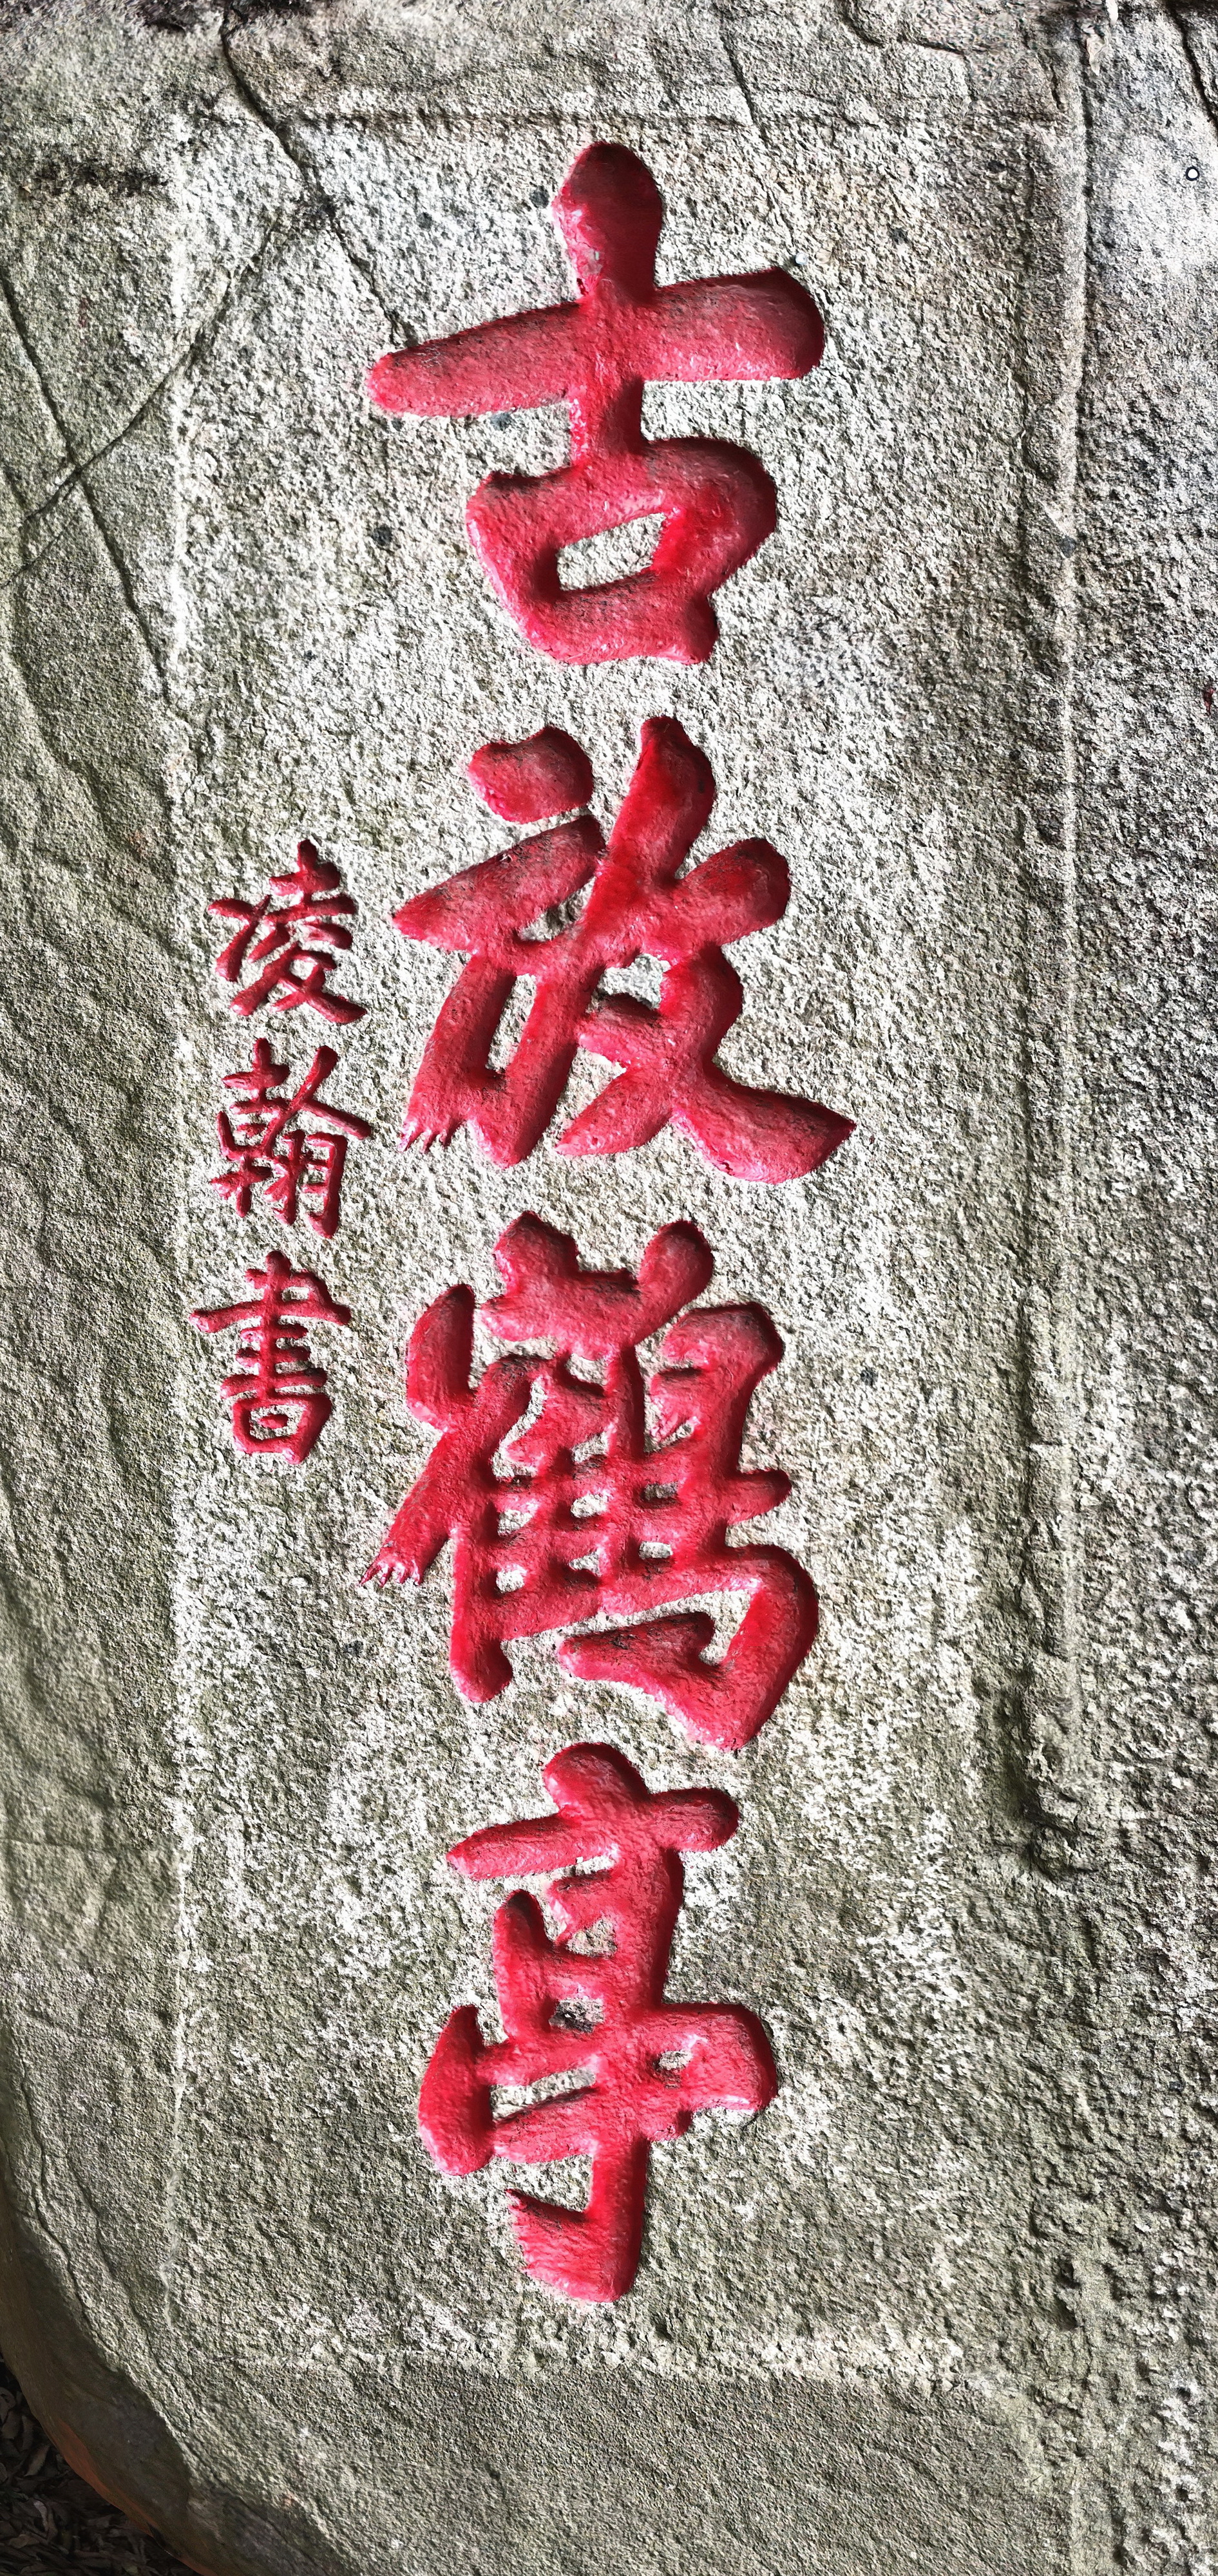 古放鶴亭
凌翰書